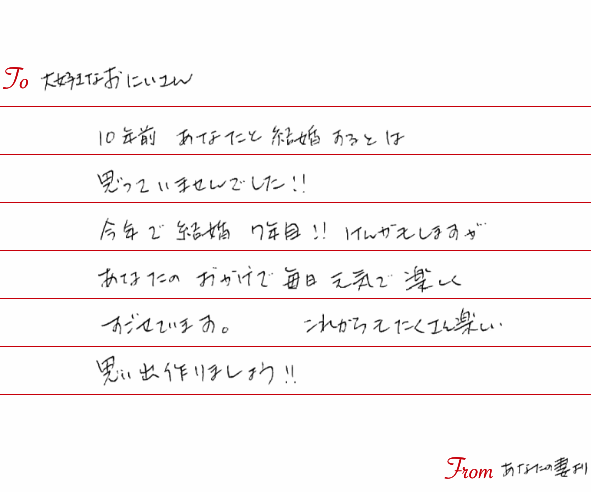 To 大好きなおにいさん
10年前 あなたと結婚するとは
思っていませんでした!!
今年で結婚7年目!! けんかもしますが
あなたのおかげで毎日元気で楽しく
すごせています。 これからもたくさん楽しい
思い出作りましょう!!
From あなたの妻より